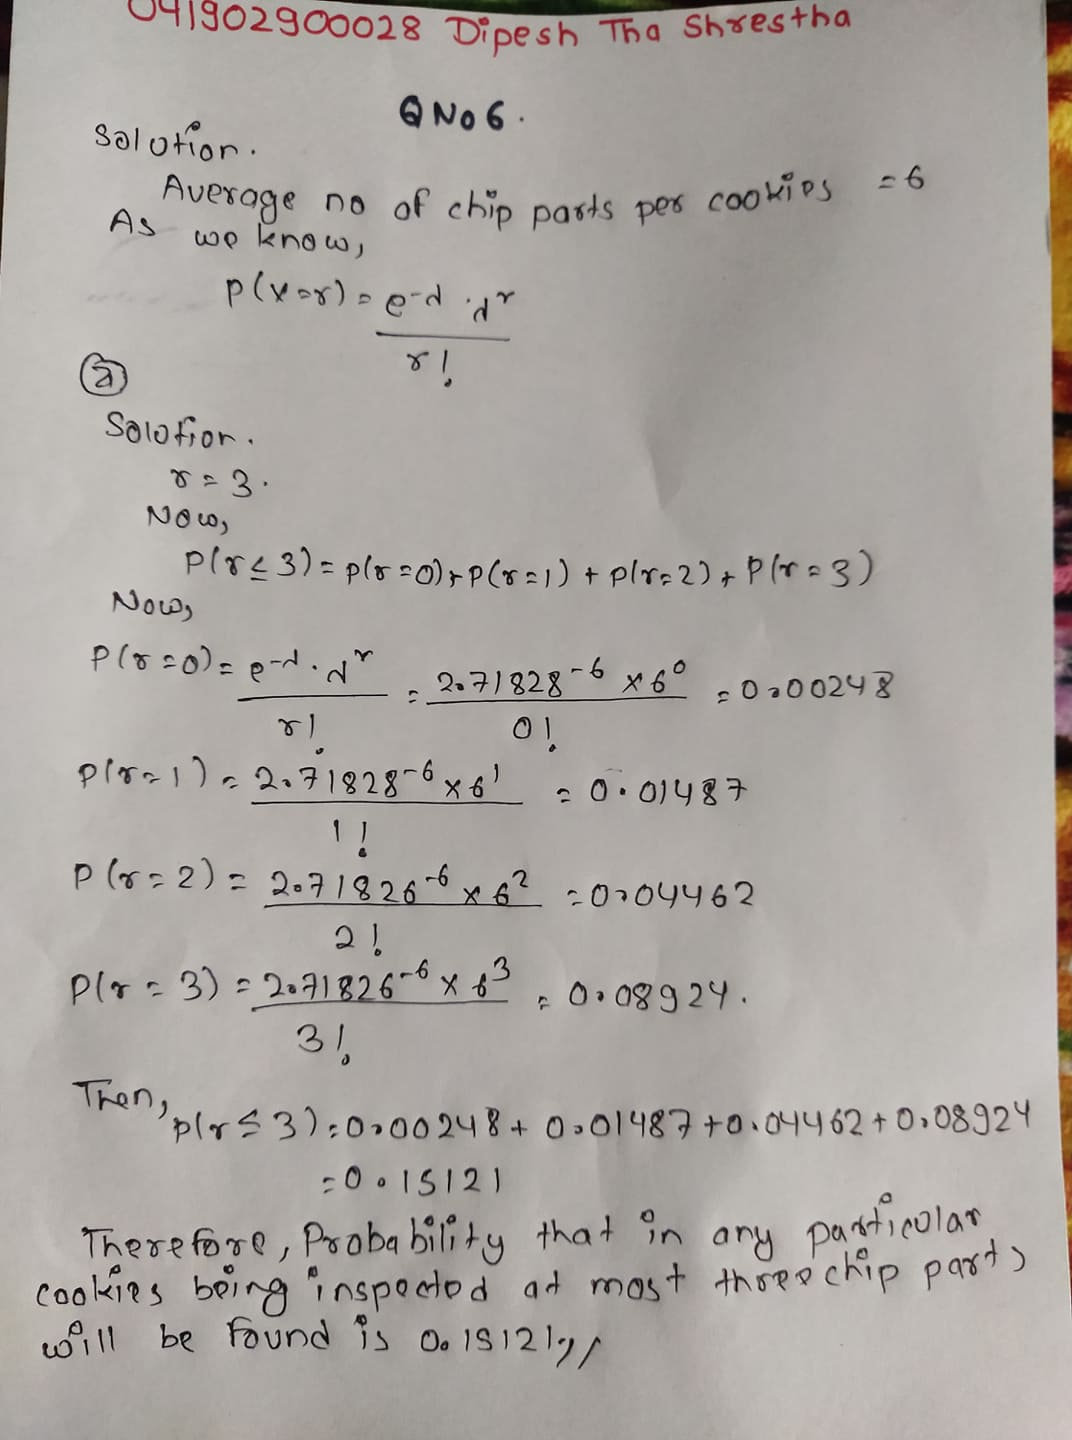 041902900028 Dipesh Tha Shrestha
Q No 6.
Solution.
Average no of chip parts per cookies = 6
As we know,
P(x=r) = e^-λ . λ^r
r!
(a)
Solution.
r = 3.
Now,
P(r ≤ 3) = P(r=0) + P(r=1) + P(r=2) + P(r=3)
Now,
P(r=0) = e^-λ . λ^r / r! = 2.71828^-6 × 6^0 / 0! = 0.00248
P(r=1) = 2.71828^-6 × 6^1 / 1! = 0.01487
P(r=2) = 2.71826^-6 × 6^2 / 2! = 0.04462
P(r=3) = 2.71826^-6 × 6^3 / 3! = 0.08924.
Then,
P(r ≤ 3) = 0.00248 + 0.01487 + 0.04462 + 0.08924
= 0.15121
Therefore, Probability that in any particular
cookies being inspected at most three chip parts
will be found is 0.15121,,